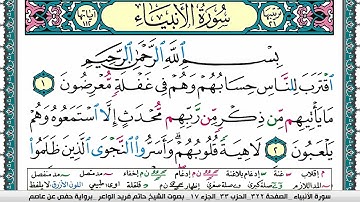 سُورَةُ الأَنْبِيَاءِ
بِسْمِ ٱللَّهِ ٱلرَّحْمَٰنِ ٱلرَّحِيمِ
ٱقْتَرَبَ لِلنَّاسِ حِسَابُهُمْ وَهُمْ فِى غَفْلَةٍ مُّعْرِضُونَ ١
مَا يَأْتِيهِم مِّن ذِكْرٍ مِّن رَّبِّهِم مُّحْدَثٍ إِلَّا ٱسْتَمَعُوهُ وَهُمْ
يَلْعَبُونَ ٢ لَاهِيَةً قُلُوبُهُمْ ۗ وَأَسَرُّوا۟ ٱلنَّجْوَى ٱلَّذِينَ ظَلَمُوا۟
سورة الأنبياء الصفحة ٣٢٢ الحزب ٣٣ الجزء ١٧ بصوت الشيخ حاتم فريد الواعر برواية حفص عن عاصم